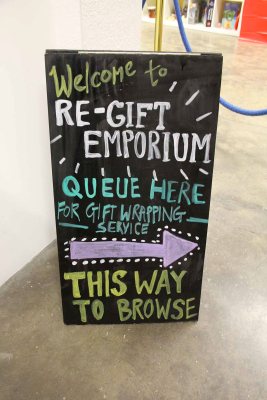 Welcome to
RE-GIFT
EMPORIUM
QUEUE HERE
FOR GIFT WRAPPING
SERVICE
THIS WAY
TO BROWSE